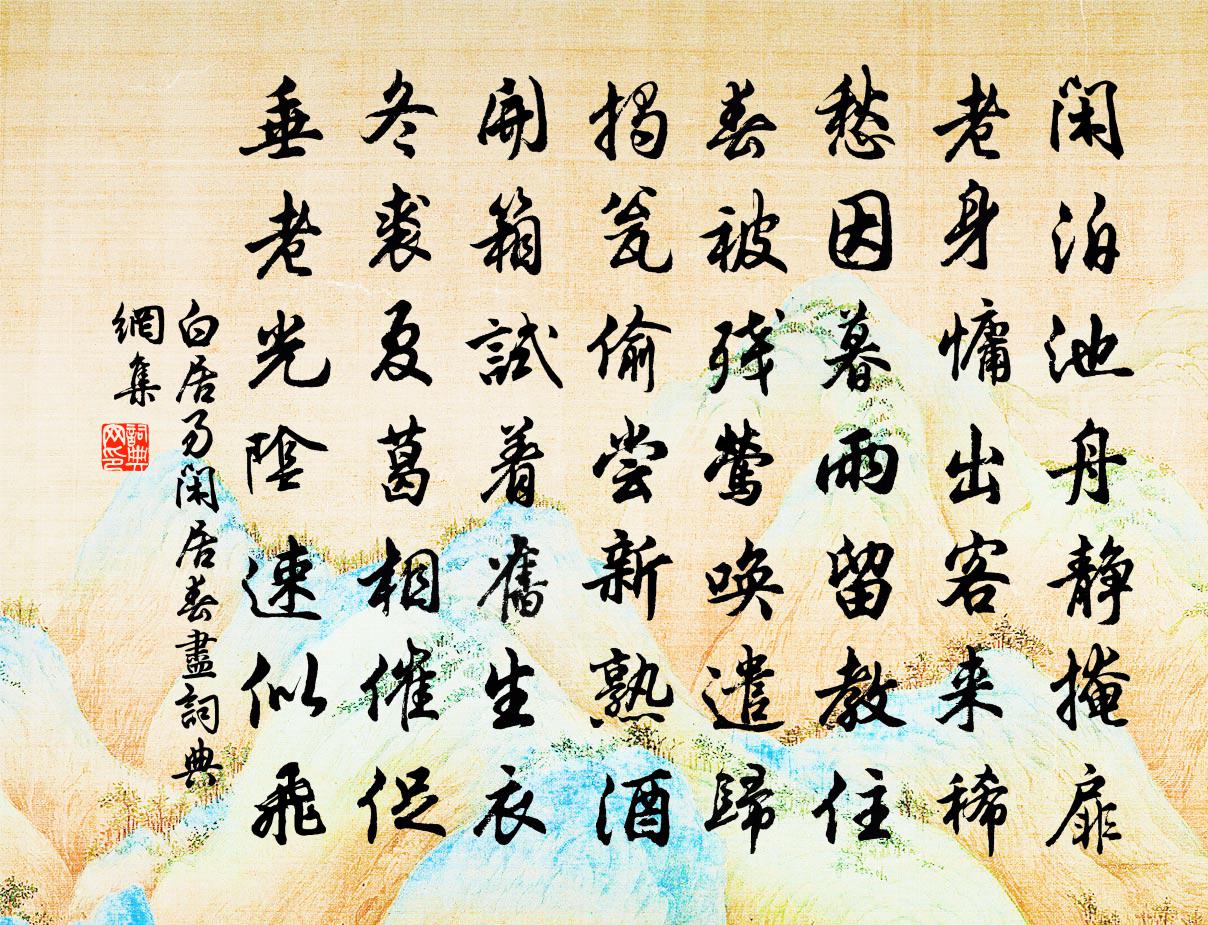 闲泊池舟静掩扉
老身慵出客来稀
愁因暮雨留教住
春被残莺唤遣歸
揭瓮偷尝新熟酒
開箱試着舊生衣
冬裘夏葛相催促
垂老光陰速似飛
白居易闲居春盡詞典
網集
詞典
网印